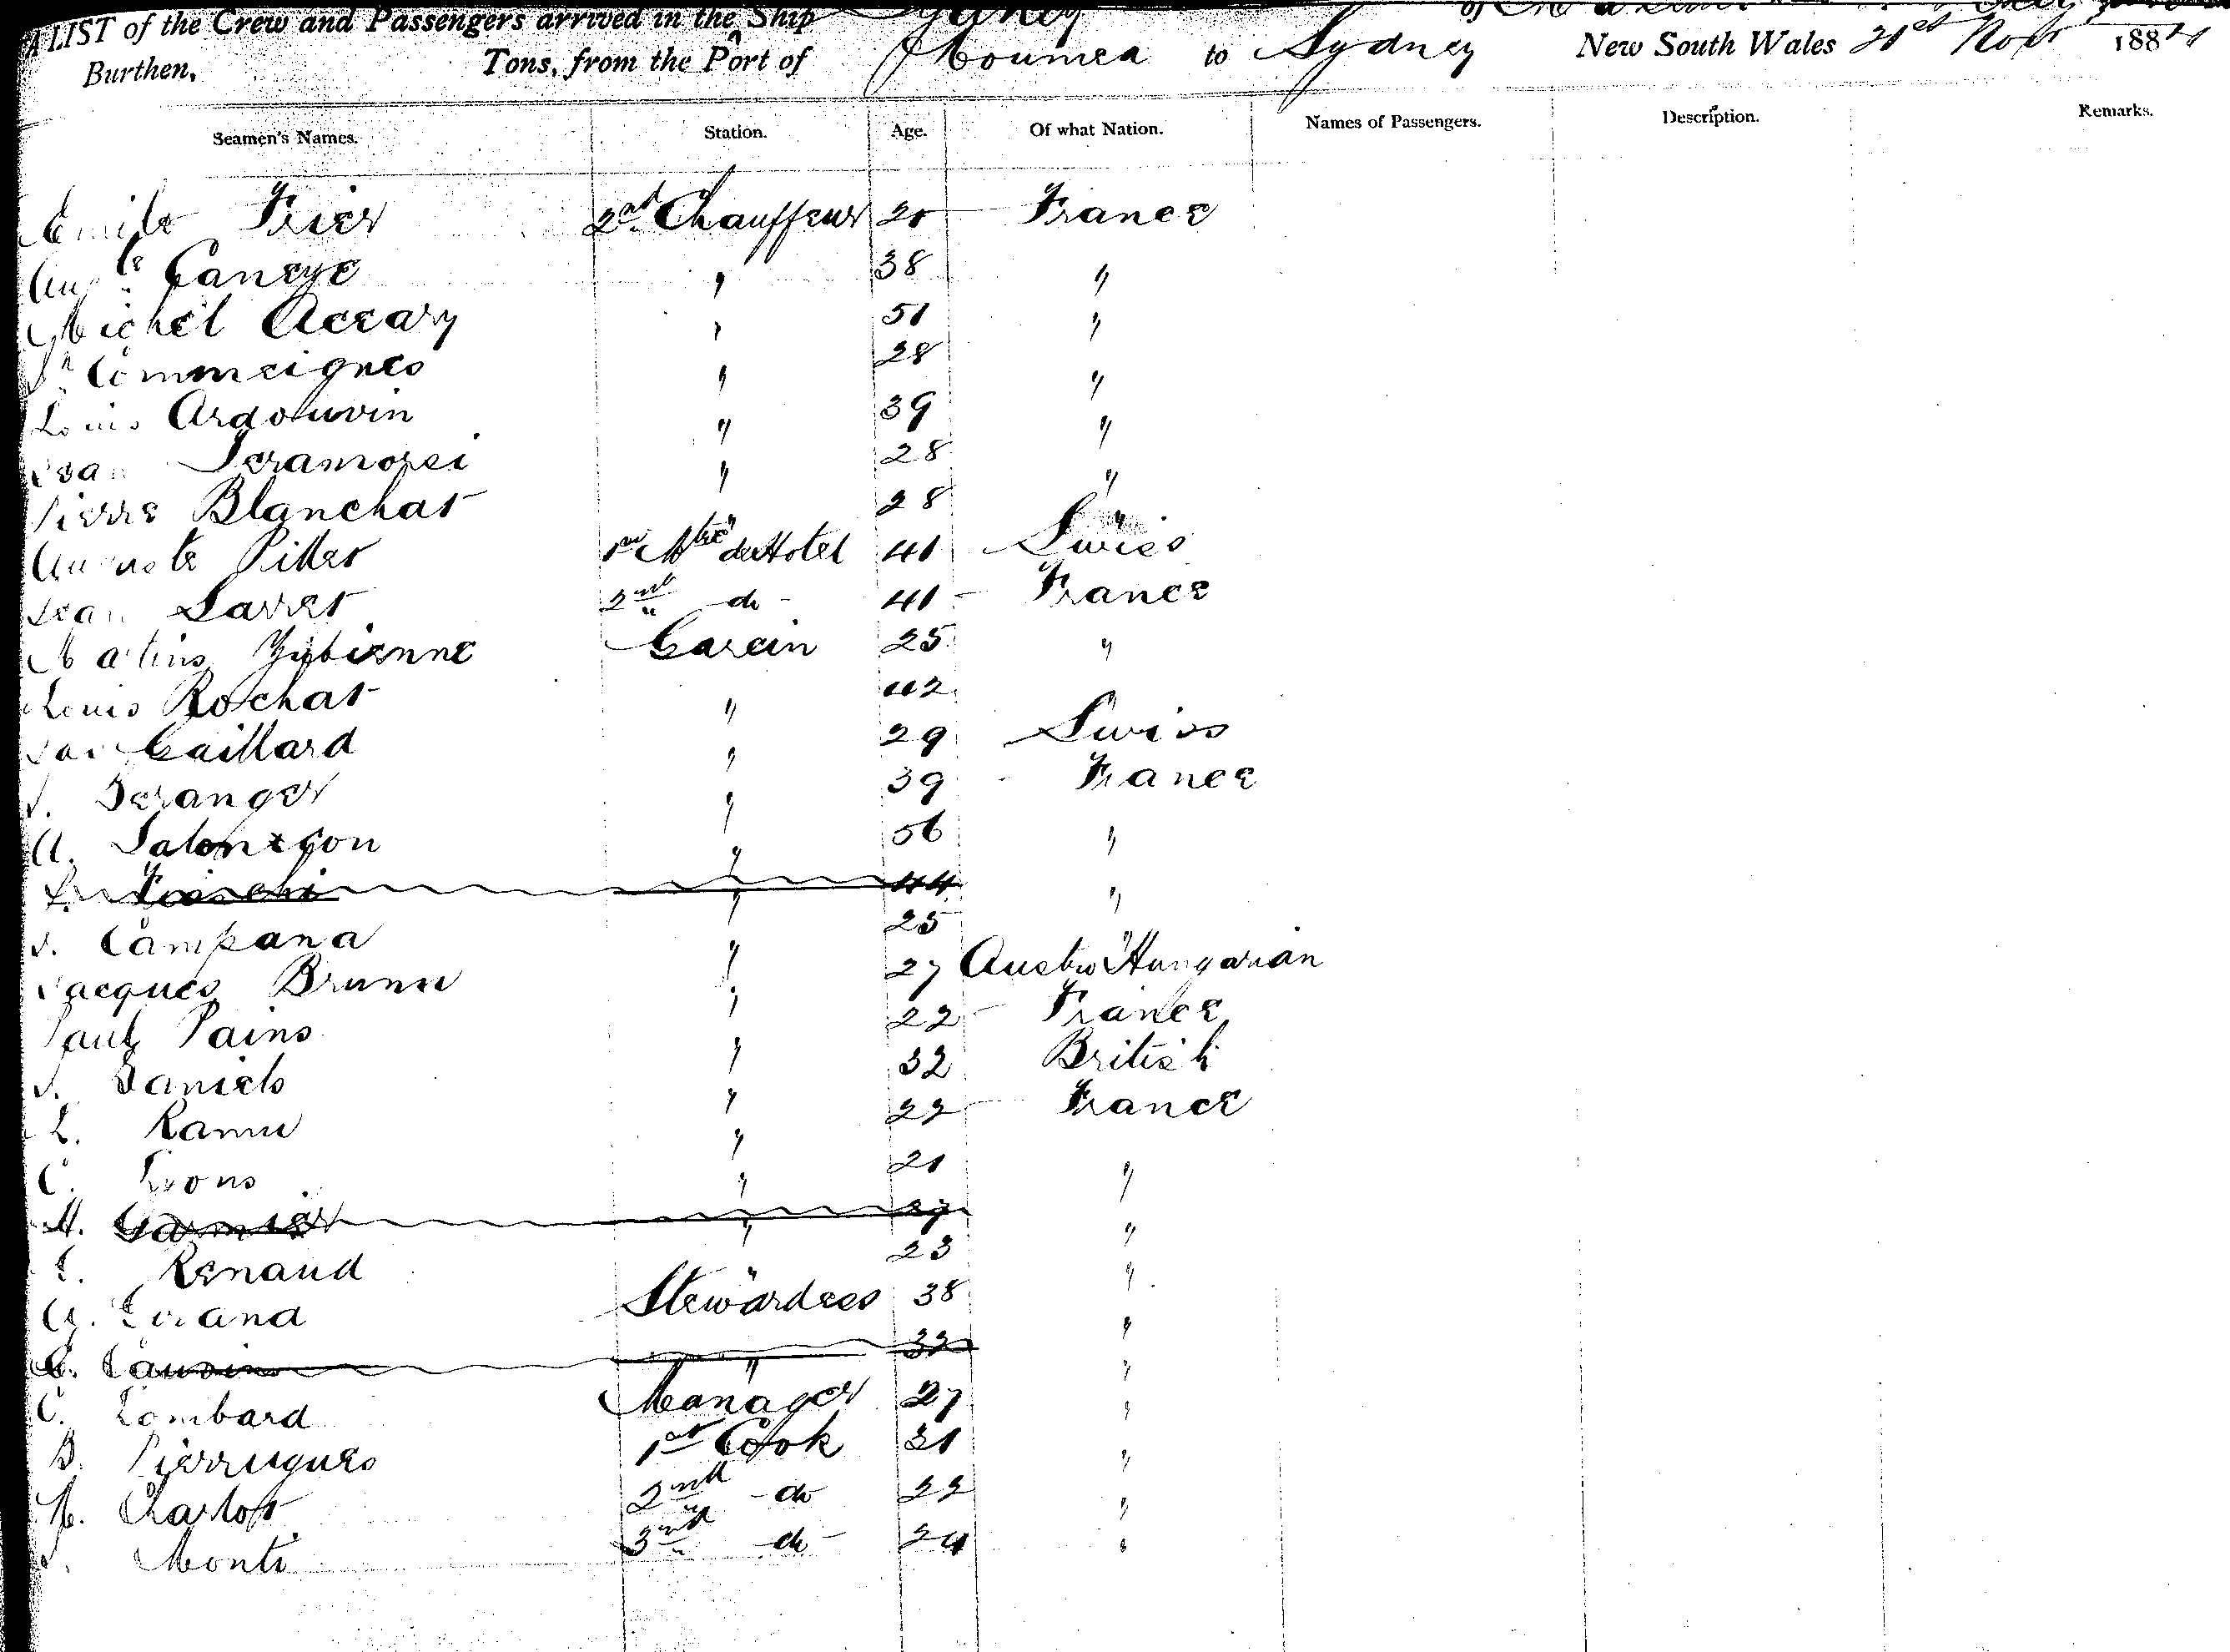 A LIST of the Crew and Passengers arrived in the Ship Sydney of
Burthen, Tons, from the Port of Noumea to Sydney New South Wales 21st Novr 188
Seamen's Names. Station. Age. Of what Nation. Names of Passengers. Description. Remarks.
Emile Frier 2nd Chauffeur 20 France
Augte Caneye " 38 "
Michel Accary " 51 "
Jn Commeignes " 28 "
Louis Ardouvin " 39 "
Jean " 28 "
Pierre Blanchat " 28 "
Auguste Piller 1er Mtre de Hotel 41 Swiss
Jean Sarret 2nd " do - 41 - France
Yubienne Garcin 25 "
Louis Rochat " 42 "
Gaillard " 29 Swiss
J. Beranger " 39 France
A. " 56 "
" 44 "
J. Campana " 25 "
Jacques Brunn " 27 Austro Hungarian
Paul Pains " 22 - France
J. Daniels " 32 British
L. Ramu " 22 France
C. Lyons " 21 "
H. Garnier " "
E. Renaud " 23 "
G. Stewardess 38 "
" 32 "
C. Lombard Manager 27 "
B. Pierrugues 1st Cook 31 "
Charlot 2nd " - do 22 "
J. Monti 3rd " - do - 24 "